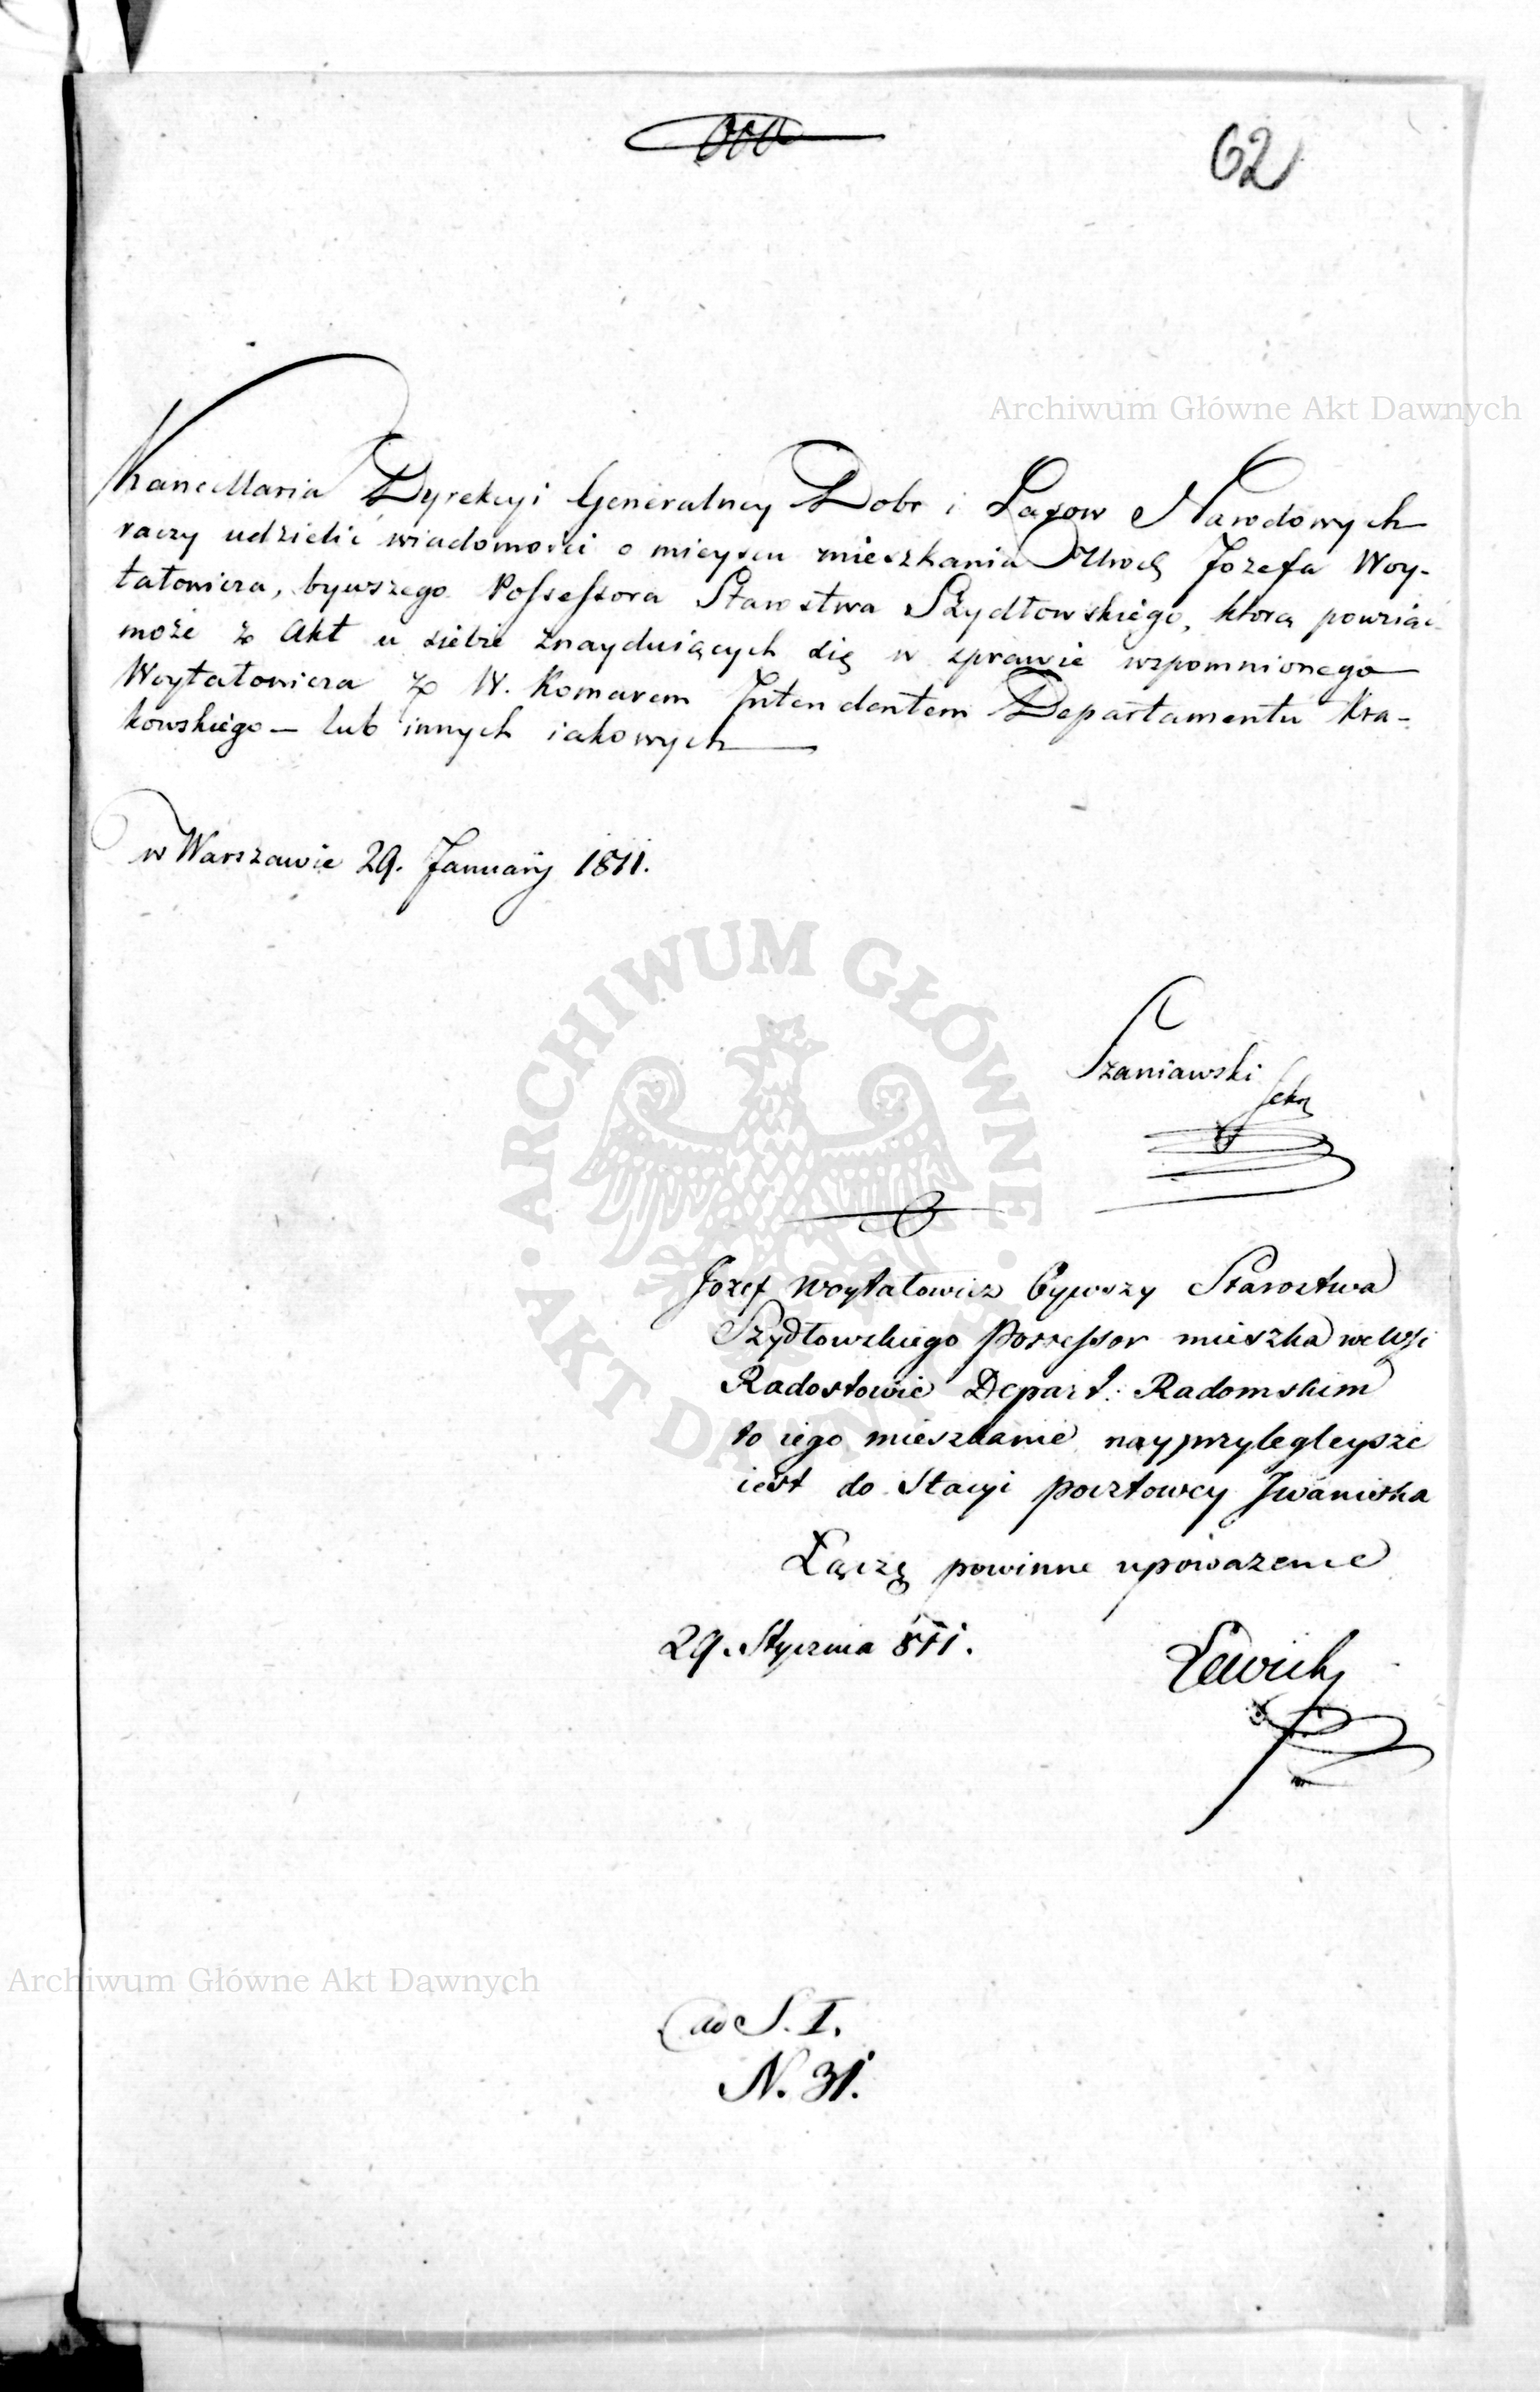 62
Archiwum Główne Akt Dawnych
Kancellaria Dyrekcyi Generalney Dobr i Lasow Narodowych
raczy udzielić wiadomości o mieyscu mieszkania Józefa Woy-
tatowicza, bywszego Possessora Starostwa Szydłowskiego, którą powziąć
może z Akt u siebie znayduiących się w sprawie wspomnionego
Woytatowicza z W. Komarem Intendentem Departamentu Kra-
kowskiego — lub innych iakowych
w Warszawie 29. January 1811.
ARCHIWUM GŁÓWNE AKT DAWNYCH
Szaniawski
Sekr
Jozef Woytatowicz bywszy Starostwa
Szydłowskiego Possessor mieszka we Wsi
Radostowie Depart: Radomskim
to iego mieszkanie nayprzylegleysze
iest do Stacyi pocztowey Iwaniska
Łączę powinne upoważenie
29. Stycznia 811.
Archiwum Główne Akt Dawnych
ad S. I.
N. 31.